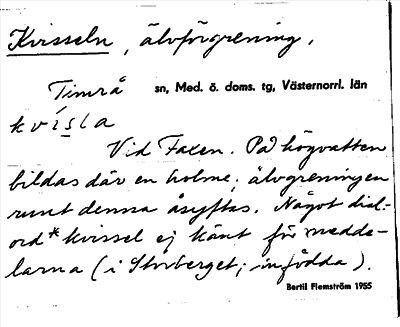 Kvisseln, älvförgrening.
Timrå sn, Med. ö. doms. tg, Västernorrl. län
kvísla
Vid Faxen. På högvatten
bildas där en holme; älvgreningen
runt denna åsyftas. Något dial.-
ord *kvissel ej känt för medde-
larna (i Storberget; infödda).
Bertil Flemström 1955